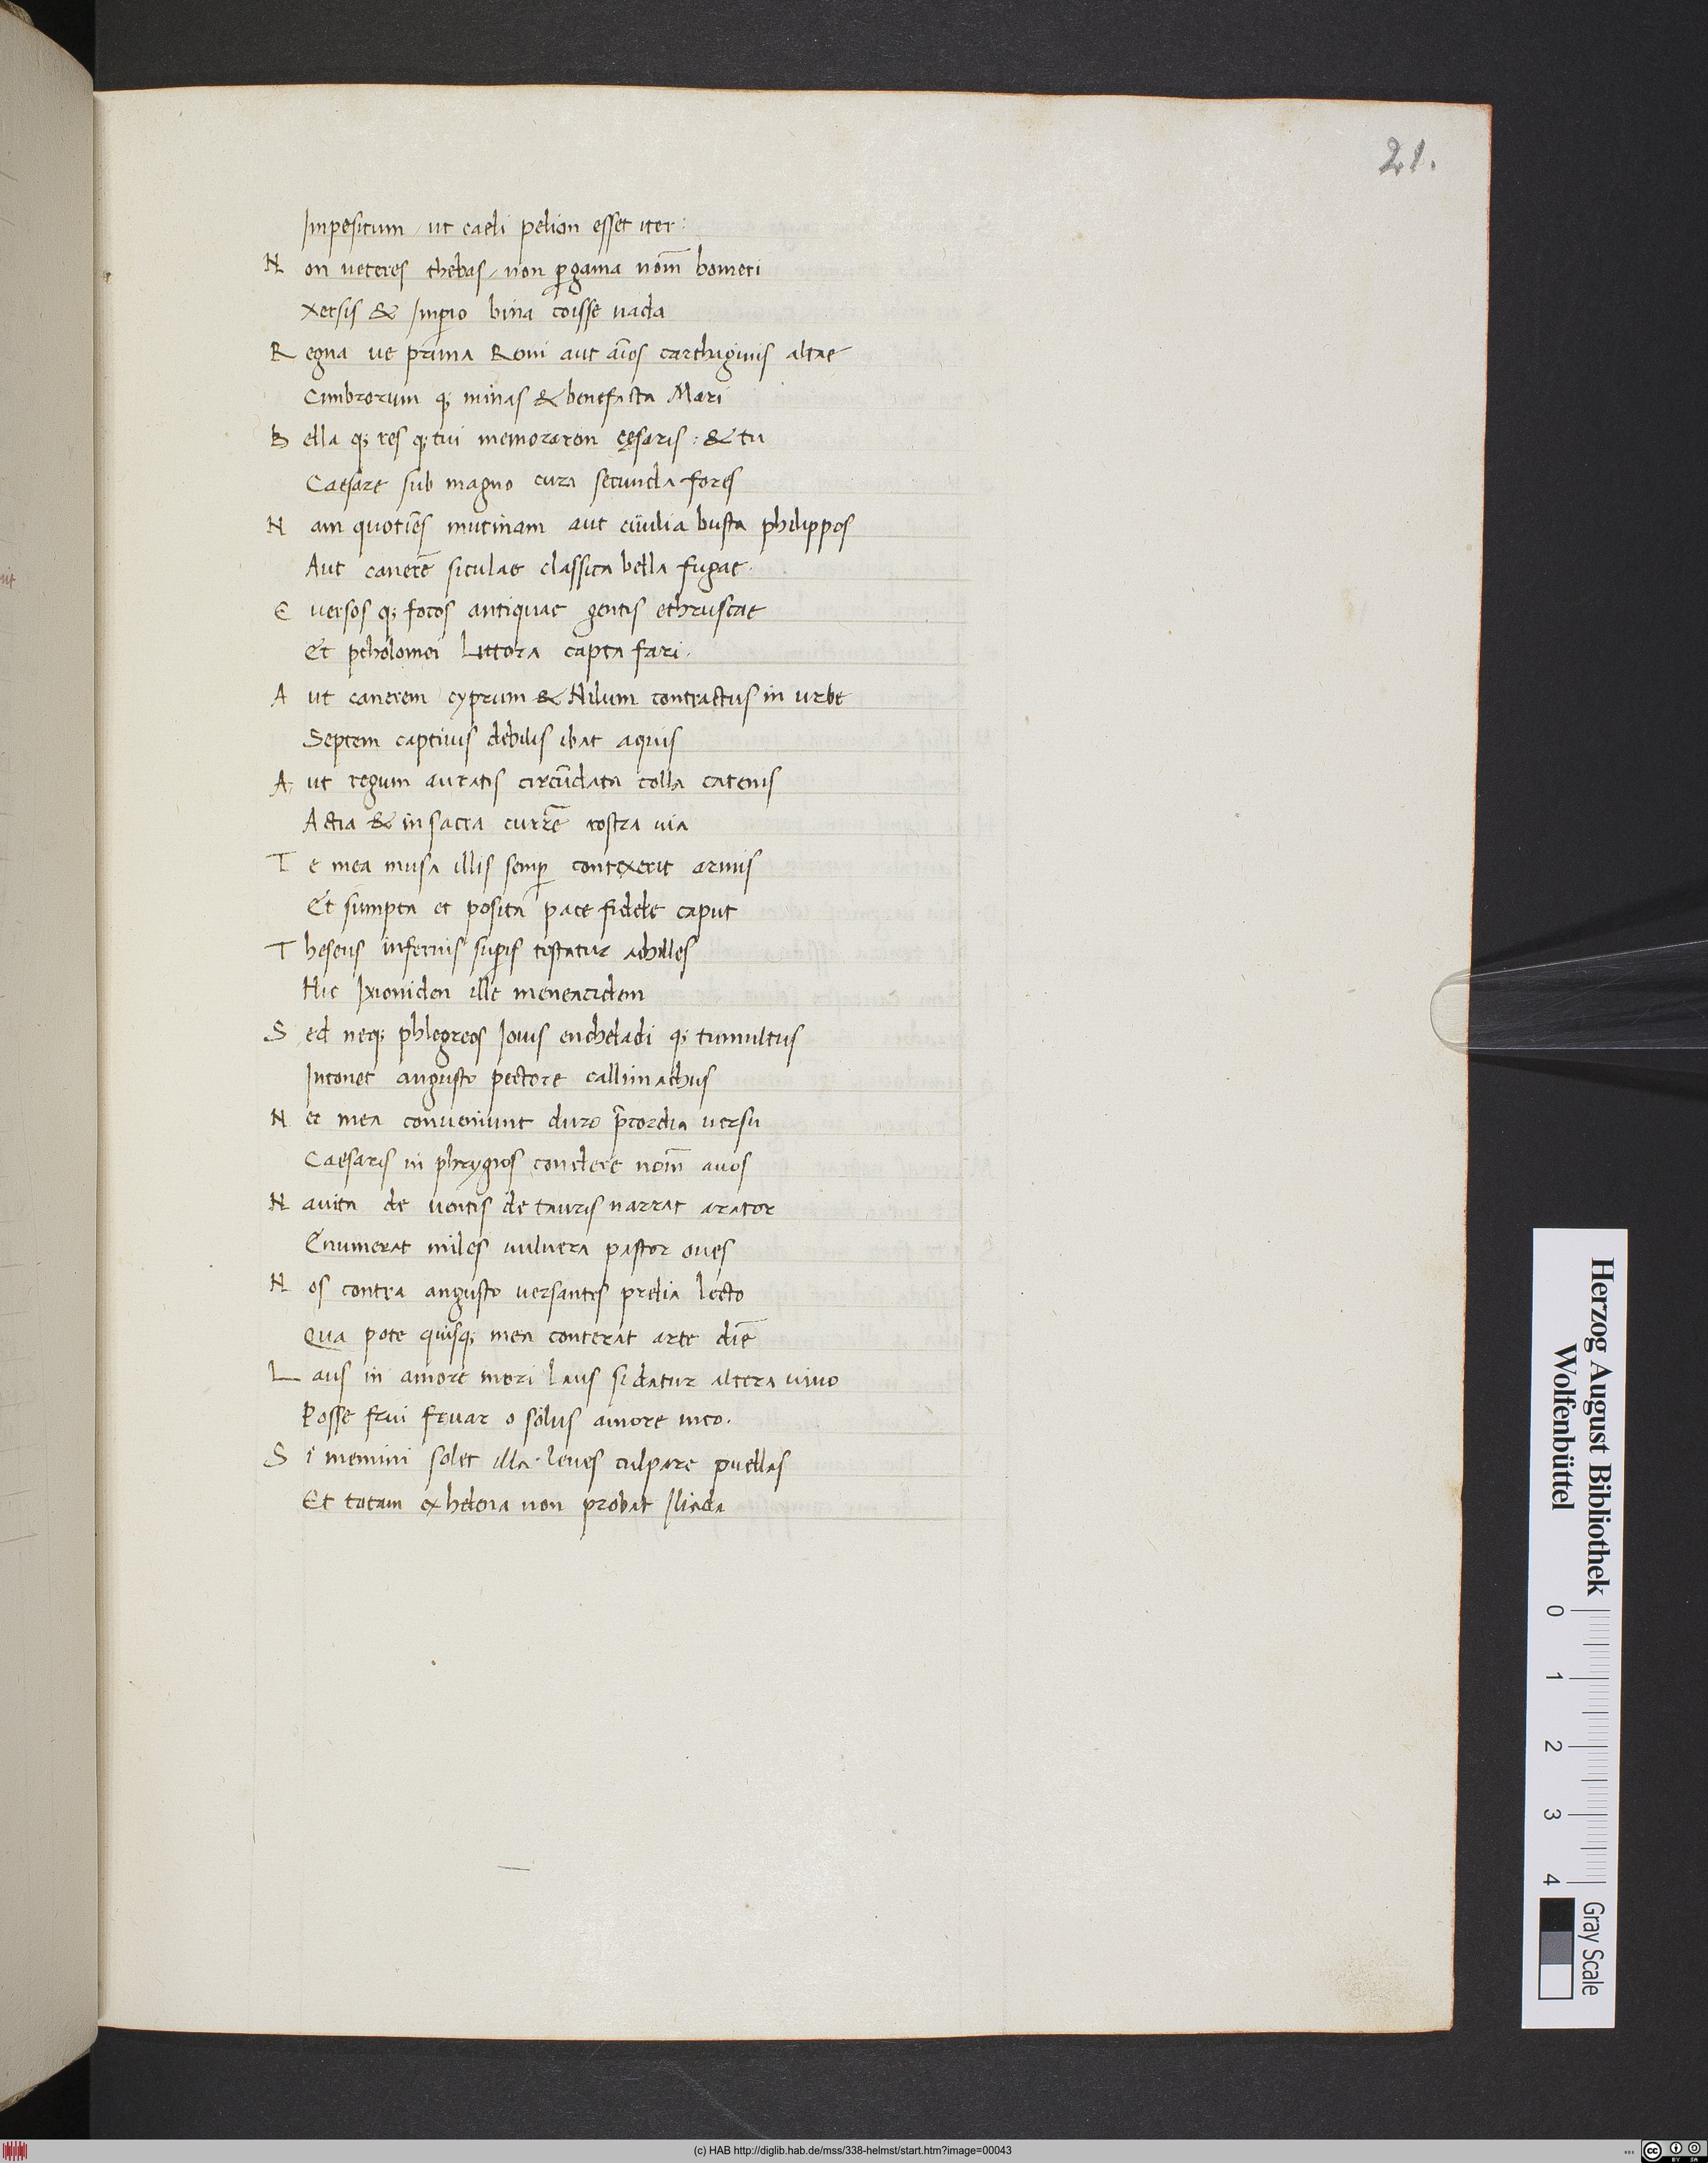 21.
Impositum / ut caeli pelion esset iter:
N on ueteres thebas / non ꝑgama nom̄ homeri
Xersis & Imꝑio bina coisse uada
R egna ue prima Remi aut aīos carthaginis altae
Cimbrorum q; minas & benefacta Mari
B ella q; res q; tui memorarem cęsaris: & tu
Caesare sub magno cura secunda fores
N am quotiēs mutinam aut ciuilia busta philippos
Aut canerē siculae classica bella fugae.
E uersos q; focos antiquae gentis ethruscae
Et ptholomei Littora capta fari.
A ut canerem cyprum & Nilum contractus in urbe
Septem captiuis debilis ibat aquis
A ut regum auratis circūdata colla catenis
Actia & in sacra currē rostra uia
T e mea musa illis semꝑ contexerit armis
Et sumpta et posita pace fidele caput
T heseus infernis suꝑis testatur achilles
Hic Ixioniden ille meneacidem
S ed neq; phlegreos Iouis encheladi q; tumultus
Intonet angusto pectore callimachus
N ec mea conueniunt duro p̄cordia uersu
Caesaris in phrygios condere nom̄ auos
N auita de uentis de tauris narrat arator
Enumerat miles uulnera pastor oues
N os contra angusto uersantes prelia lecto
Qua pote quisq; mea conterat arte diē
L aus in amore mori laus si datur altera uiuo
Posse frui fruar o solus amore meo.
S i memini solet illa leues culpare puellas
Et totam ex helena non probat Iliada
Herzog August Bibliothek
Wolfenbüttel
0 1 2 3 4
Gray Scale
(c) HAB http://diglib.hab.de/mss/338-helmst/start.htm?image=00043